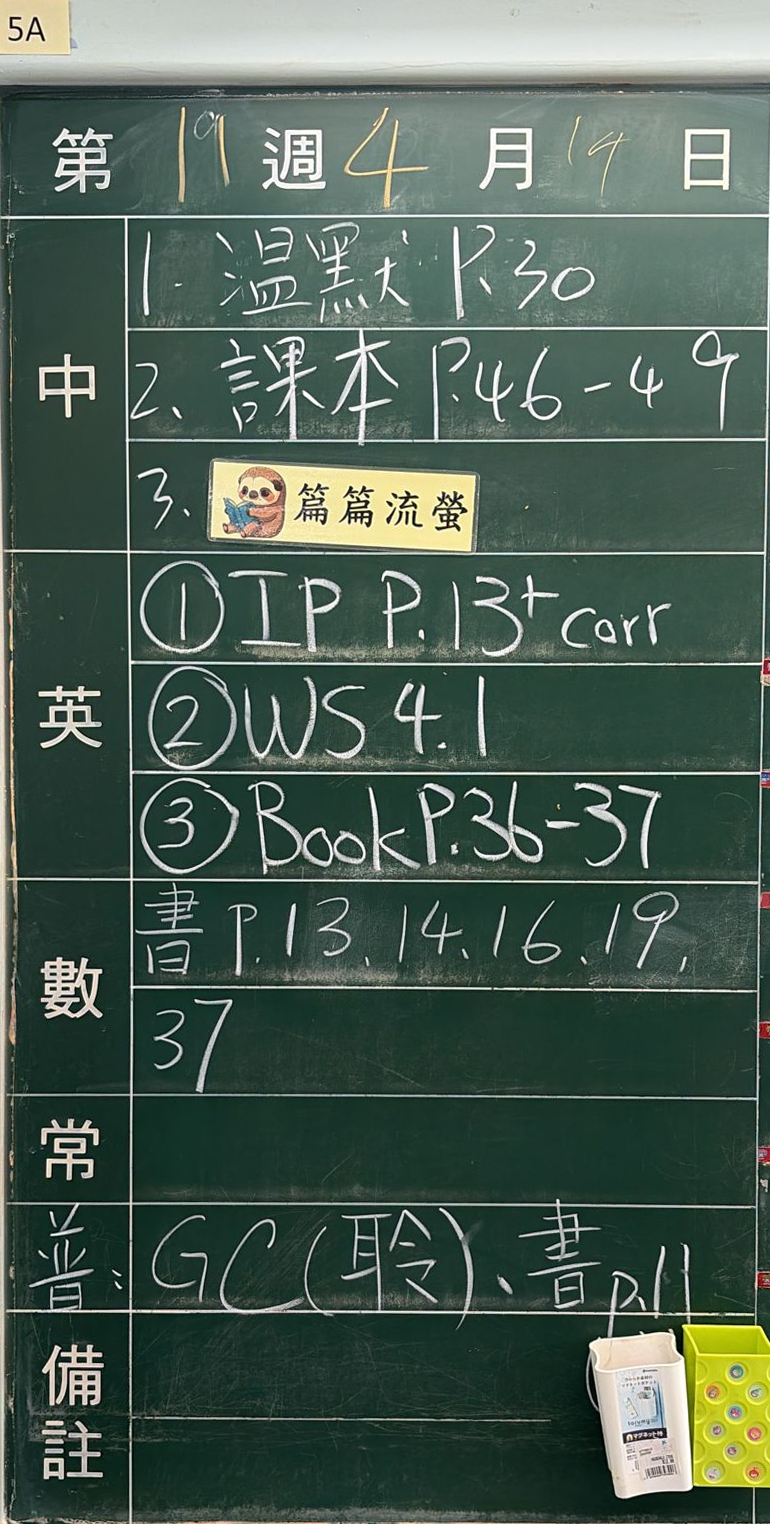 5A
第 19 週 4 月 14 日
中
1. 溫默 P.30
2、課本 P.46-49
3、篇篇流螢
英
① IP P.13 + corr
② WS 4.1
③ Book P.36-37
數
書 P.13、14、16、19、
37
常
普：GC(聆)、書 p.11
備註
マグネット